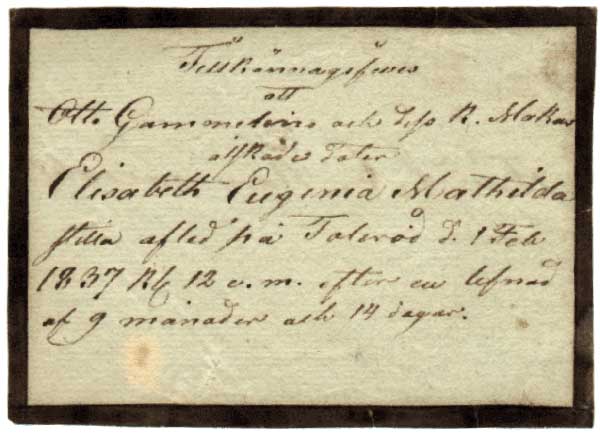 Tillkännagifwes
att
Otto Gammelin och dess K. Makas
älskade Doter
Elisabeth Eugenia Mathilda
stilla afled på Toleröd d. 1 Feb
1837 Kl 12 e. m. efter en lefnad
af 9 månader och 14 dagar.